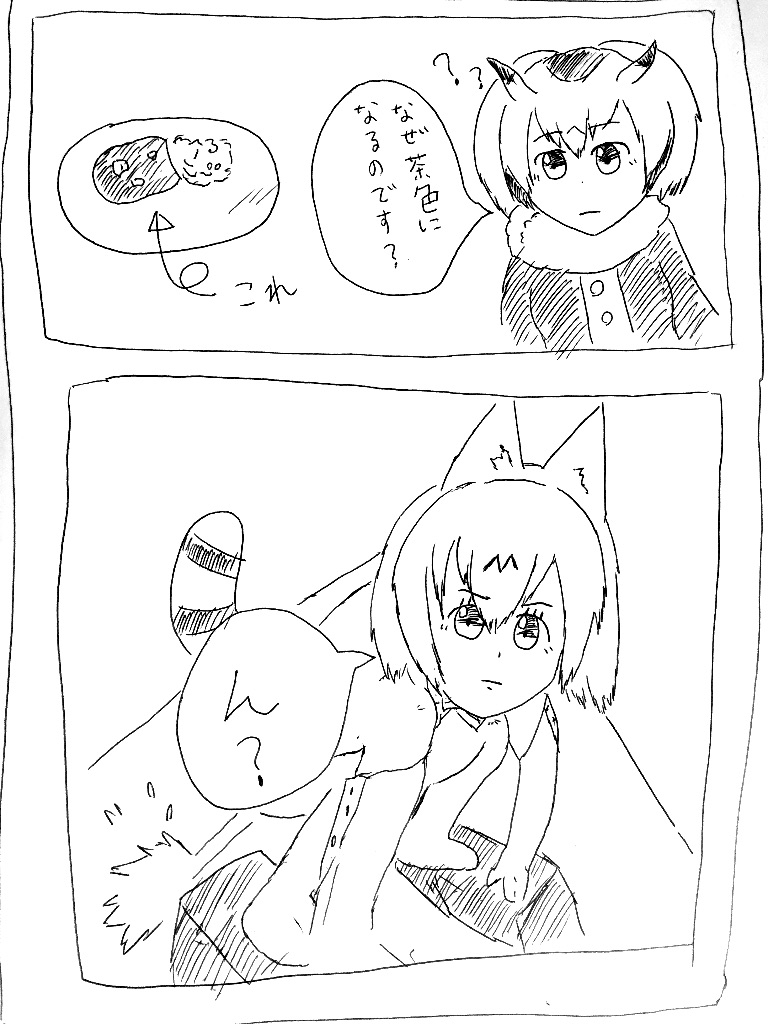 ??
なぜ茶色に
なるのです?
これ
ん?